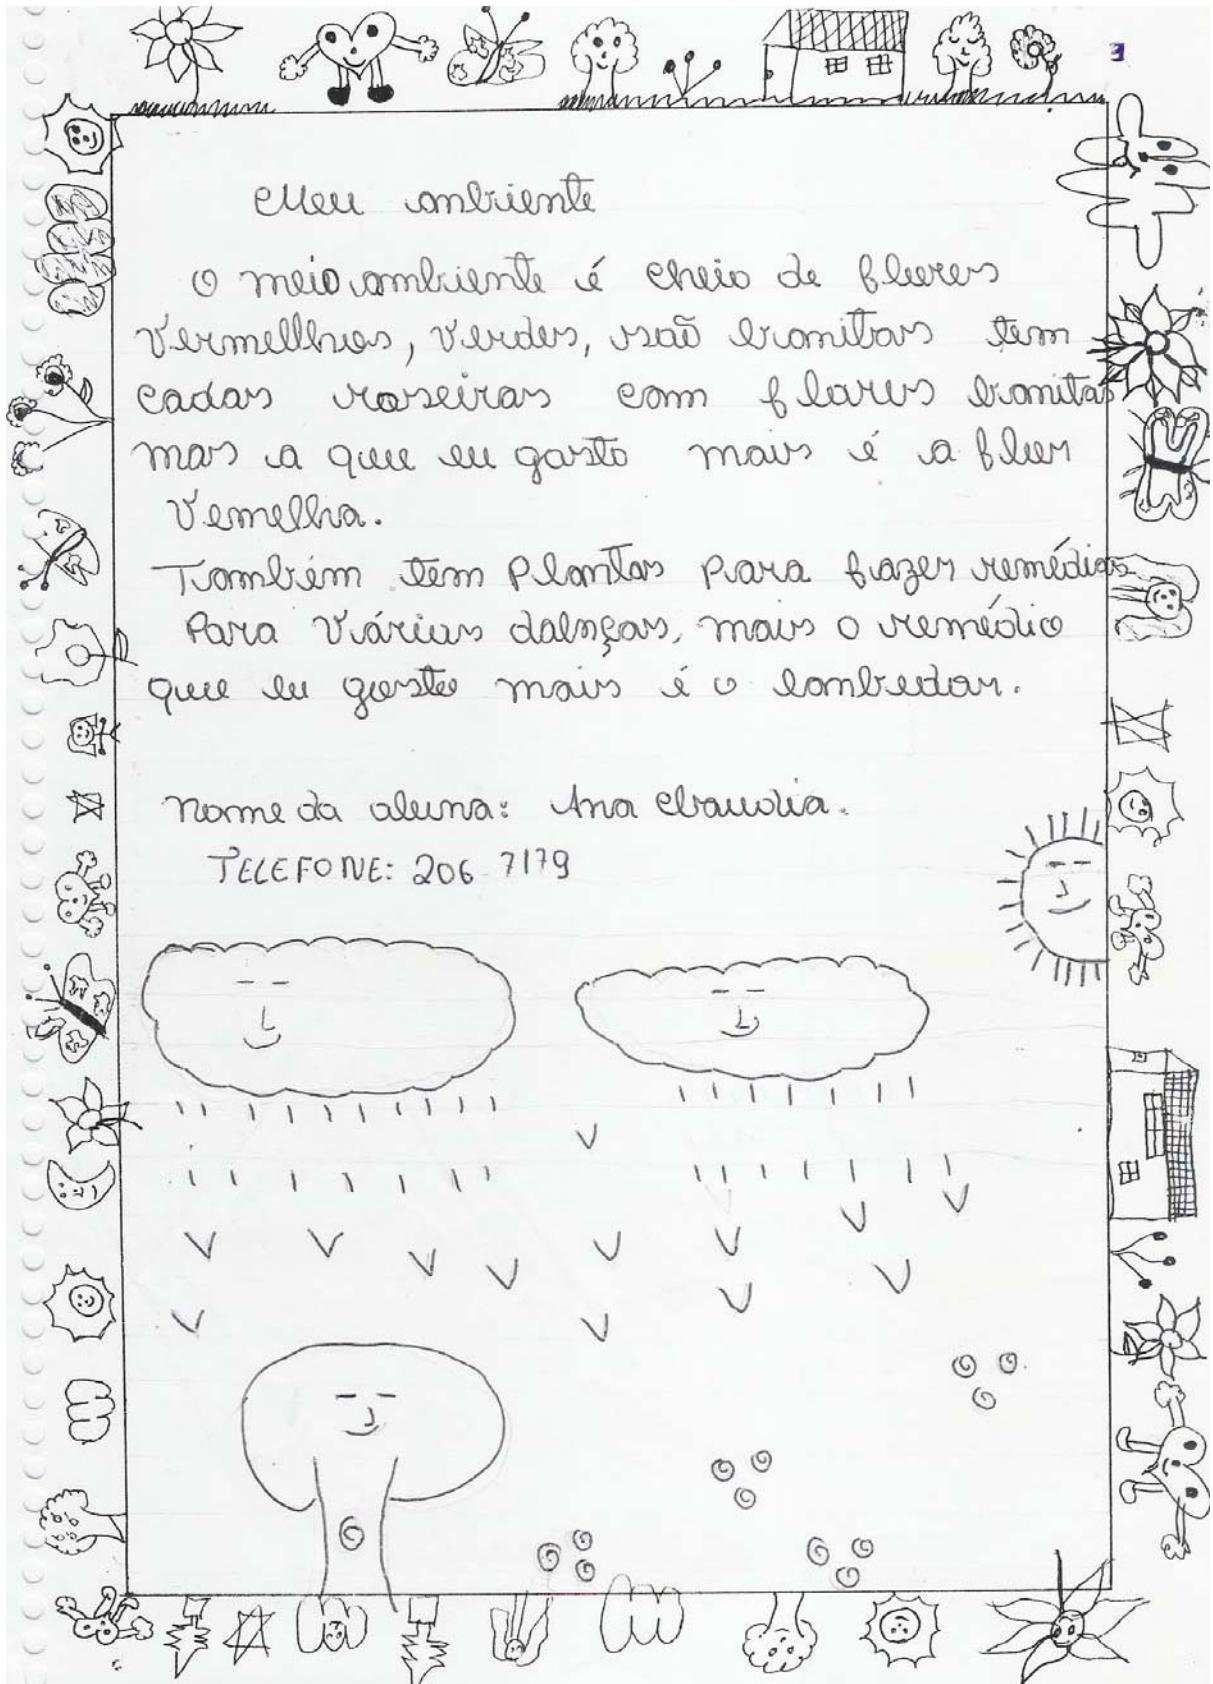 3
Meu ambiente
O meio ambiente é cheio de flores
vermelhos, verdes, são bonitas tem
cadas roseiras com flores bonitas
mas a que eu gosto mais é a flor
vemelha.
Também tem Plantas Para fazer remédios
Para várias dalnças, mais o remédio
que eu gosto mais é o lambedor.
Nome da aluna: Ana Claudia.
TELEFONE: 206-7179